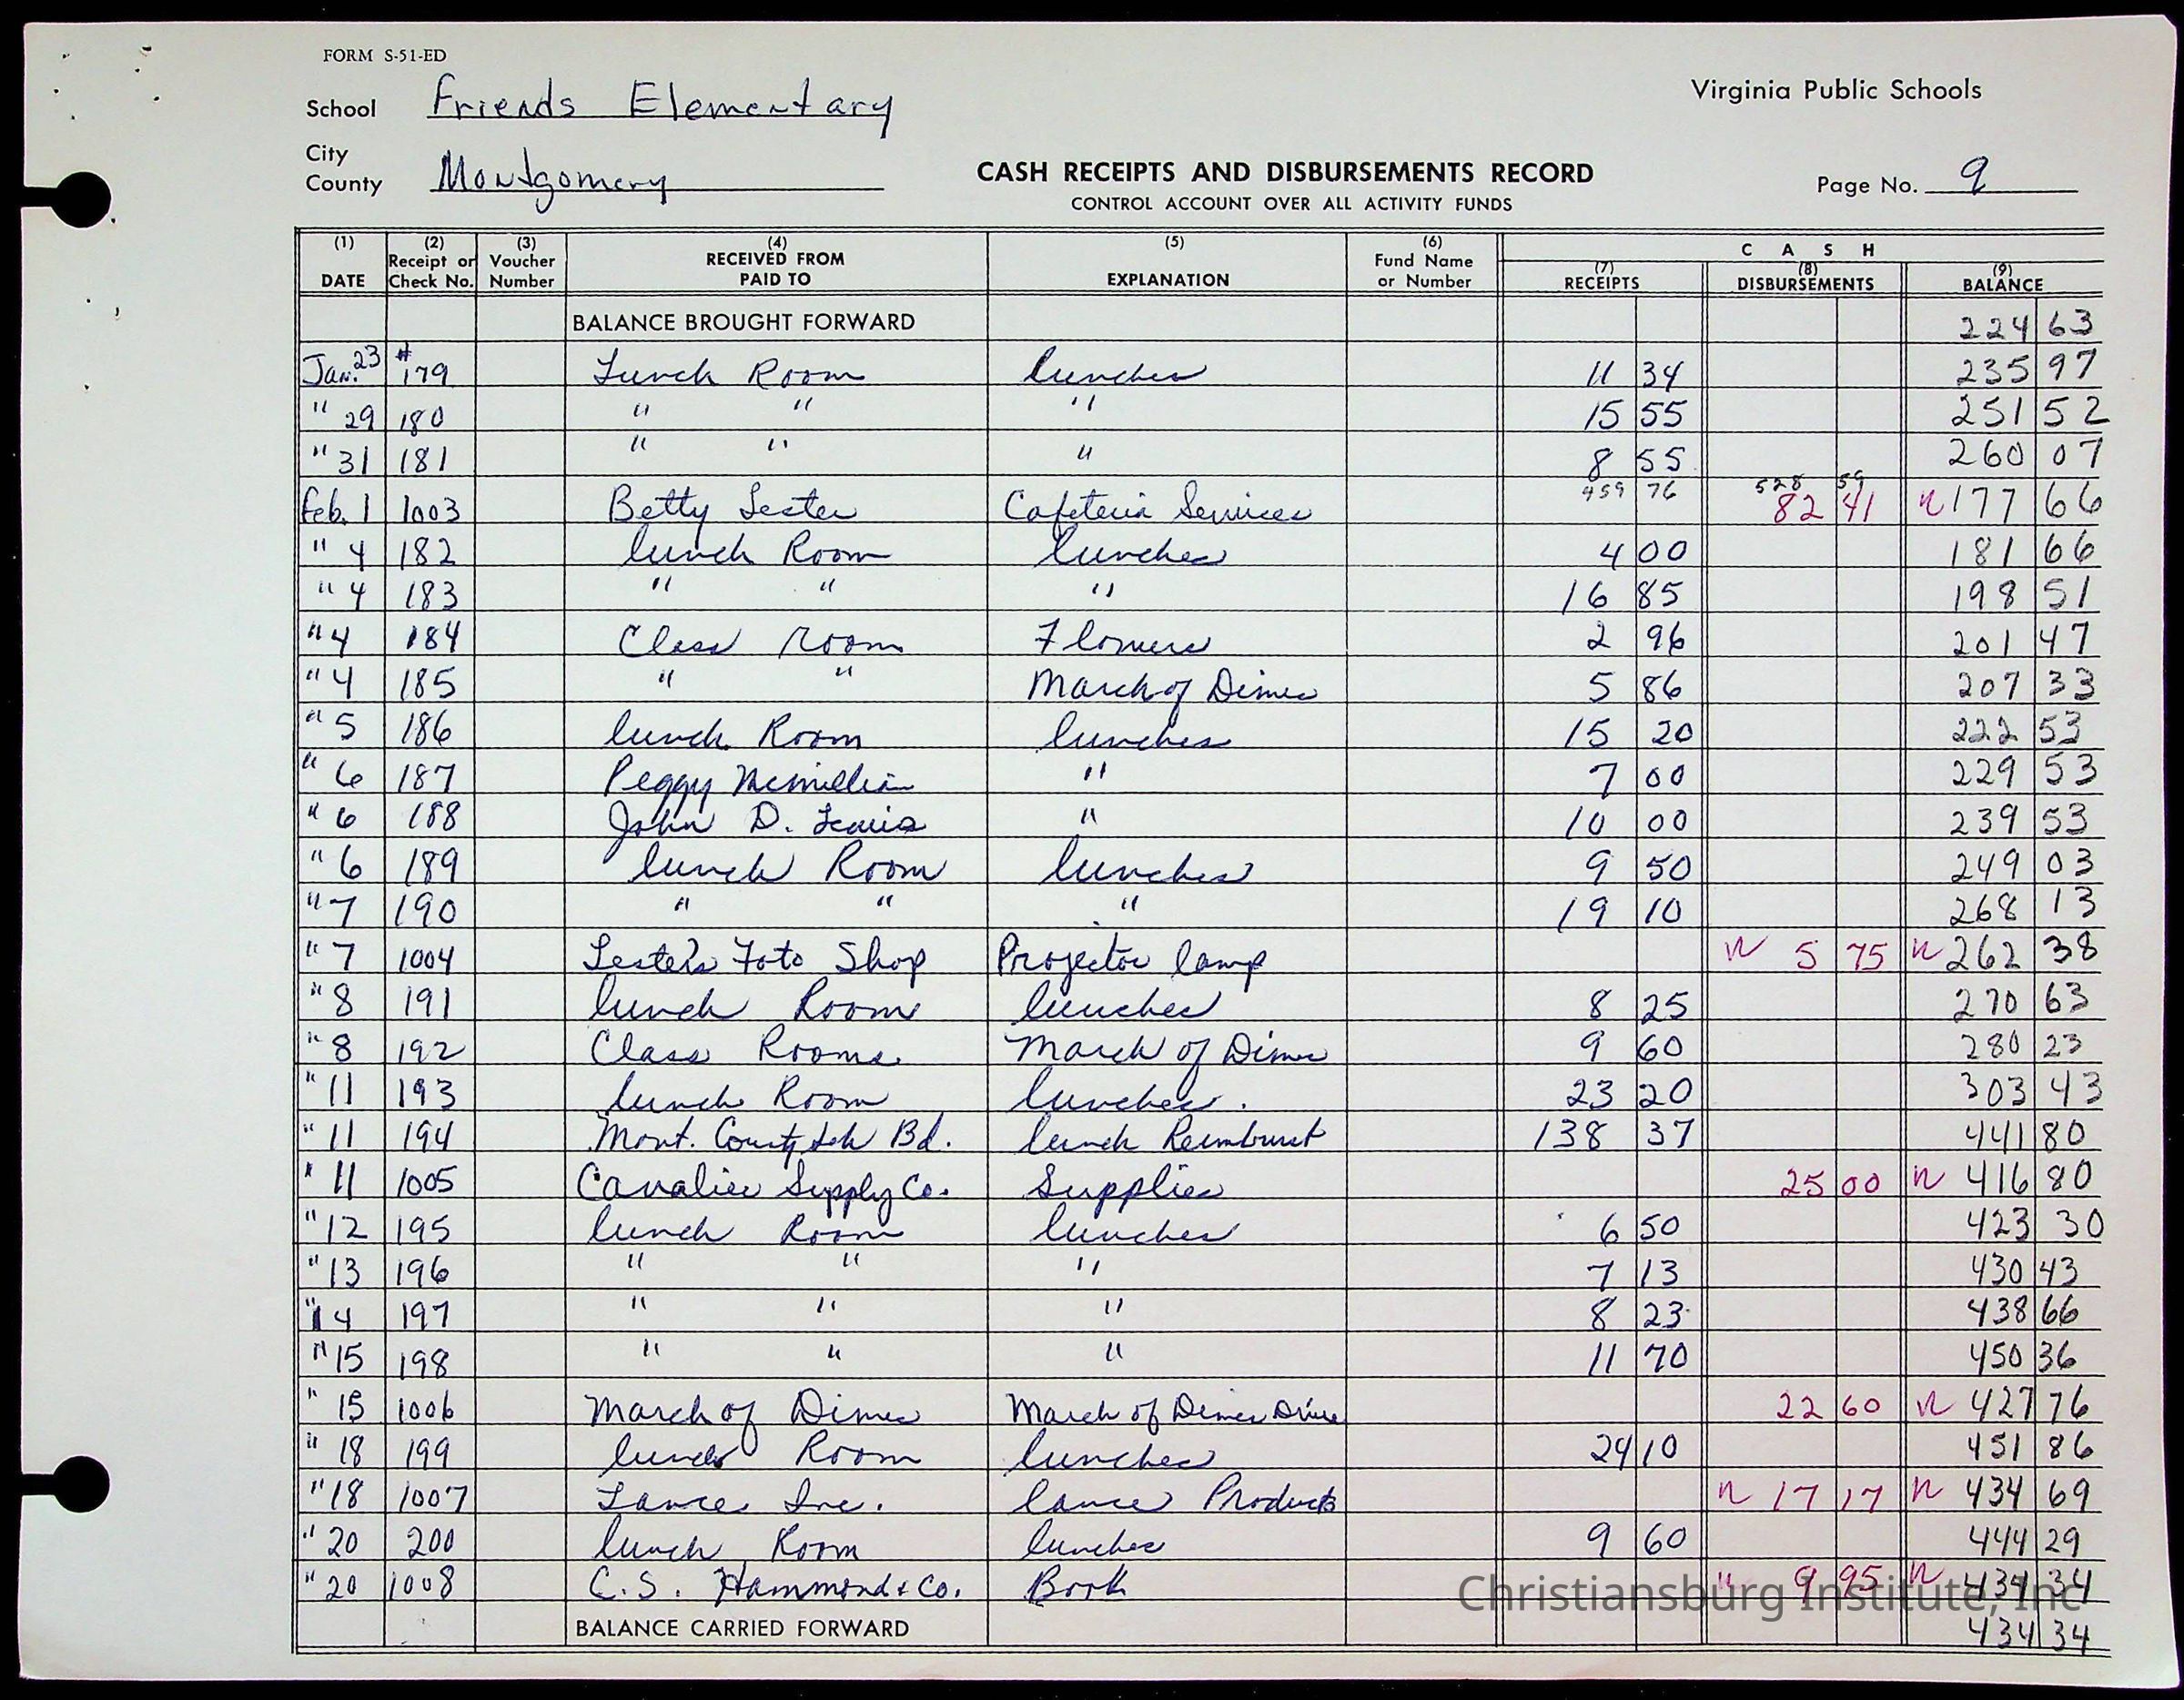 FORM S-51-ED
School Friends Elementary
Virginia Public Schools
City
County Montgomery
CASH RECEIPTS AND DISBURSEMENTS RECORD
Page No. 9
CONTROL ACCOUNT OVER ALL ACTIVITY FUNDS
(1) DATE (2) Receipt or Check No. (3) Voucher Number (4) RECEIVED FROM PAID TO (5) EXPLANATION (6) Fund Name or Number CASH (7) RECEIPTS (8) DISBURSEMENTS (9) BALANCE
BALANCE BROUGHT FORWARD 224 63
Jan. 23 #179 Lunch Room lunches 11 34 235 97
" 29 180 " " " 15 55 251 52
" 31 181 " " " 8 55 260 07
459 76 528 59
Feb. 1 1003 Betty Lester Cafeteria Services 82 41 177 66
" 4 182 lunch Room lunches 4 00 181 66
" 4 183 " " " 16 85 198 51
" 4 184 Class Room Flowers 2 96 201 47
" 4 185 " " March of Dimes 5 86 207 33
" 5 186 lunch Room lunches 15 20 222 53
" 6 187 Peggy Mcmillian " 7 00 229 53
" 6 188 John D. Lewis " 10 00 239 53
" 6 189 lunch Room lunches 9 50 249 03
" 7 190 " " " 19 10 268 13
" 7 1004 Lester's Foto Shop Projector lamp 5 75 262 38
" 8 191 lunch Room lunches 8 25 270 63
" 8 192 Class Rooms March of Dimes 9 60 280 23
" 11 193 lunch Room lunches. 23 20 303 43
" 11 194 Mont. County Sch Bd. lunch Reimburst 138 37 441 80
" 11 1005 Cavalier Supply Co. Supplies 25 00 416 80
" 12 195 lunch Room lunches 6 50 423 30
" 13 196 " " " 7 13 430 43
" 14 197 " " " 8 23 438 66
" 15 198 " " " 11 70 450 36
" 15 1006 March of Dimes March of Dimes Drive 22 60 427 76
" 18 199 lunch Room lunches 24 10 451 86
" 18 1007 Lance Inc. lance Products 17 17 434 69
" 20 200 lunch Room lunches 9 60 444 29
" 20 1008 C.S. Hammond & Co. Book " 9 95 434 34
Christiansburg Institute, Inc
BALANCE CARRIED FORWARD 434 34